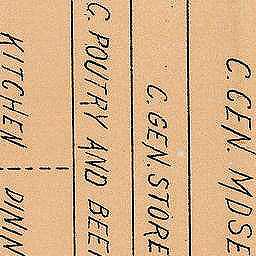 C. GEN. MDSE
C. GEN. STORE
G. POULTRY AND BEEF
KITCHEN
DININ